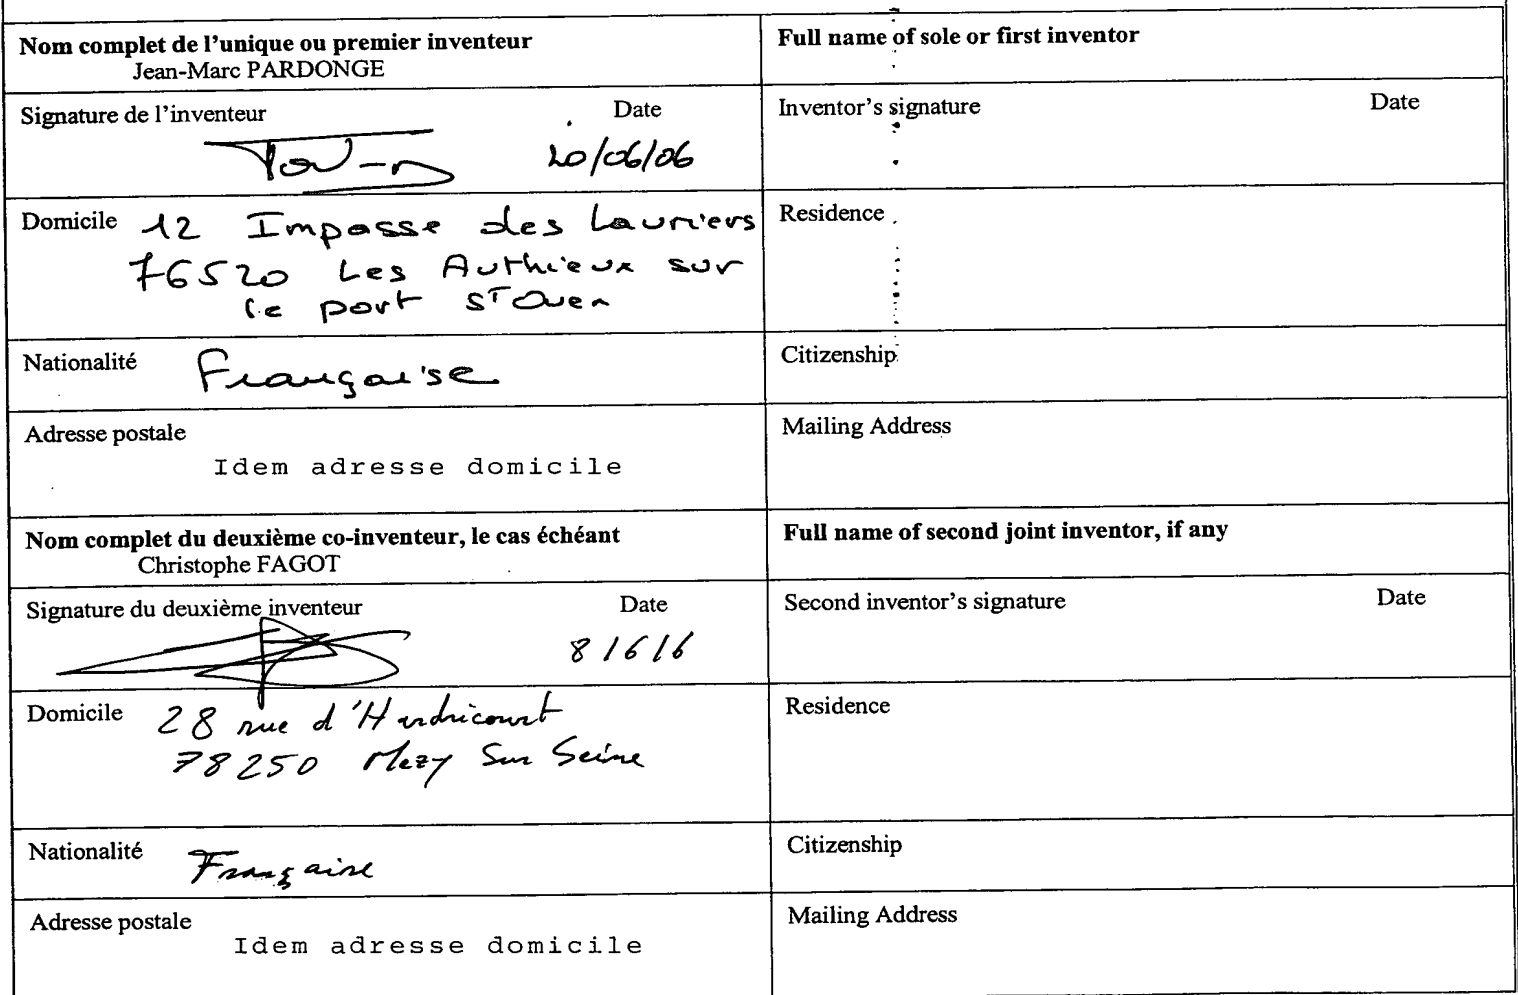 Nom complet de l'unique ou premier inventeur
Jean-Marc PARDONGE
Full name of sole or first inventor
Signature de l'inventeur Date
20/06/06
Inventor's signature Date
Domicile 12 Impasse des Lauriers
76520 Les Authieux sur
le port St Ouen
Residence
Nationalité Française
Citizenship
Adresse postale
Idem adresse domicile
Mailing Address
Nom complet du deuxième co-inventeur, le cas échéant
Christophe FAGOT
Full name of second joint inventor, if any
Signature du deuxième inventeur Date
8/6/6
Second inventor's signature Date
Domicile 28 rue d'Hardricourt
78250 Mezy Sur Seine
Residence
Nationalité Française
Citizenship
Adresse postale
Idem adresse domicile
Mailing Address